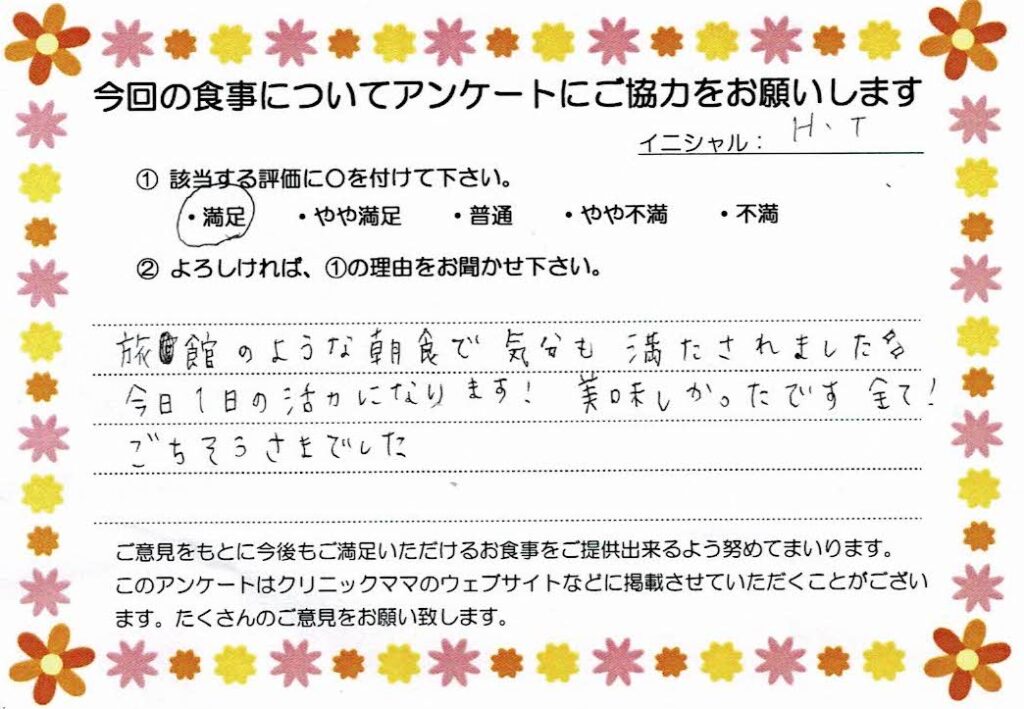 今回の食事についてアンケートにご協力をお願いします
イニシャル： H.T
① 該当する評価に〇を付けて下さい。
・満足 ・やや満足 ・普通 ・やや不満 ・不満
② よろしければ、①の理由をお聞かせ下さい。
旅館のような朝食で 気分も 満たされました
今日1日の活力になります! 美味しかったです 全て!
ごちそうさまでした
ご意見をもとに今後もご満足いただけるお食事をご提供出来るよう努めてまいります。
このアンケートはクリニックママのウェブサイトなどに掲載させていただくことがござい
ます。たくさんのご意見をお願い致します。